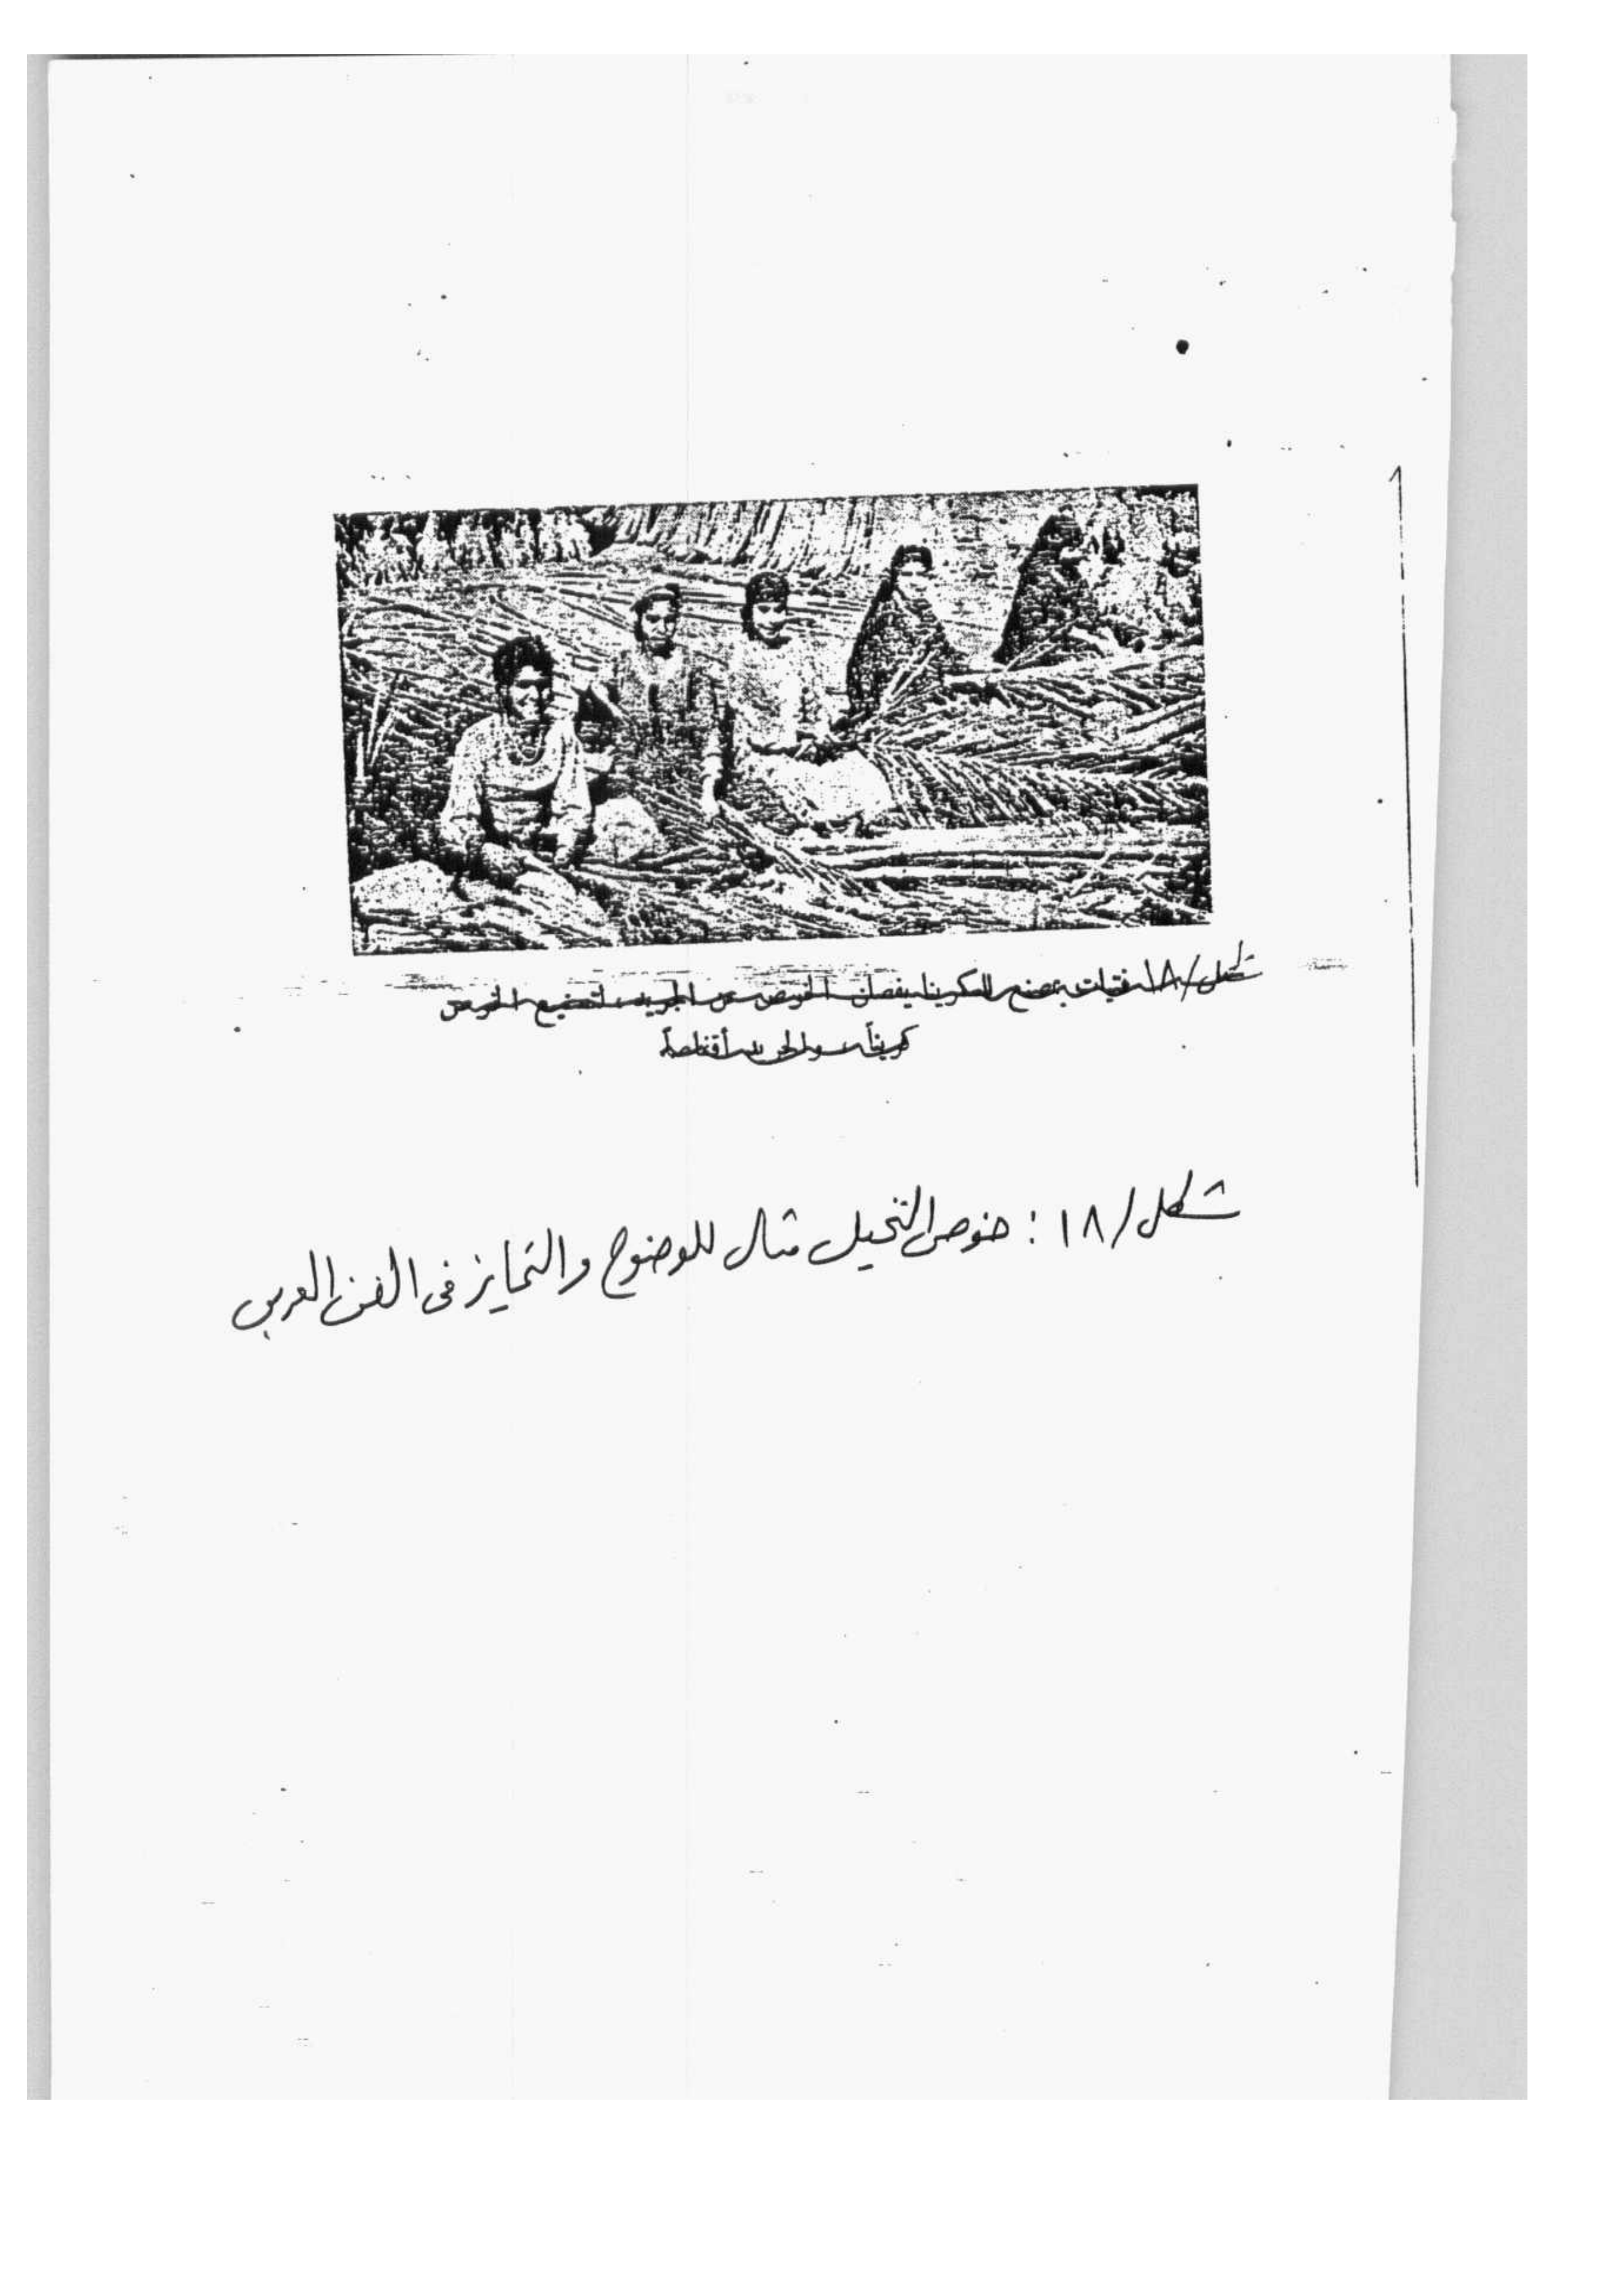 شكل/١٨ فتيات بمصنع الكرينا يفصلن الخوص عن الجريد، لتصنيع الخوص
كريناً، والجريد أقفاصاً
شكل/١٨ : خوص النخيل مثال للوضوح والتمايز فى الفن العربى